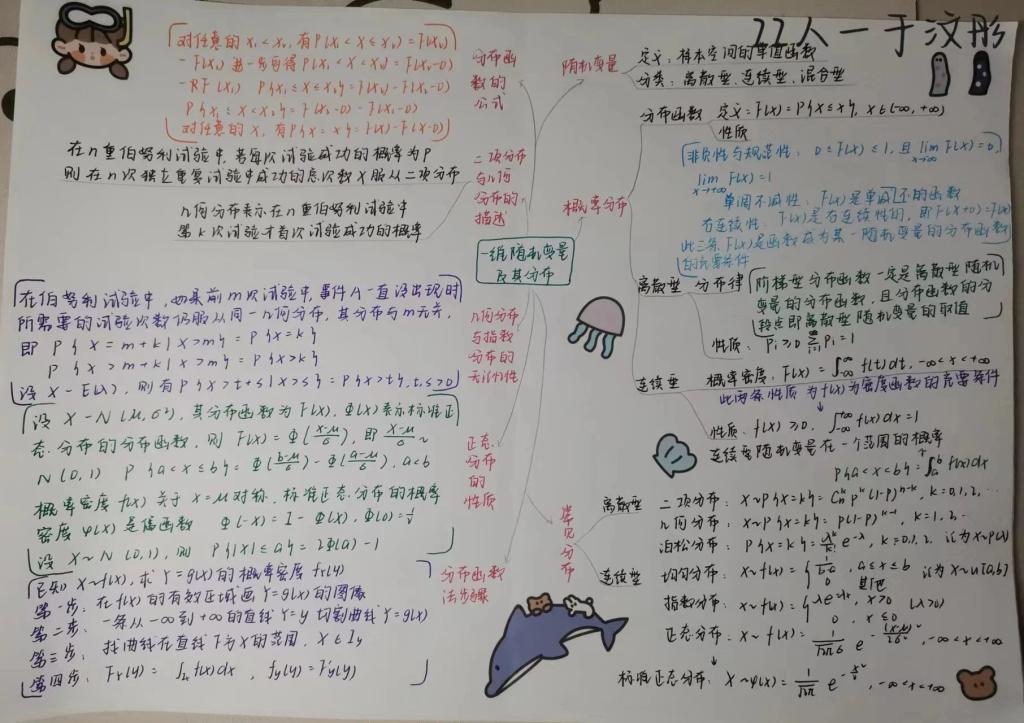 22人一于汶彤
一维随机变量
及其分布
随机变量
定义：样本空间的单值函数
分类：离散型、连续型、混合型
概率分布
分布函数 定义：F(x)=P{X≤x}, x∈(-∞,+∞)
性质
非负性与规范性：0≤F(x)≤1,且 lim F(x)=0,
lim F(x)=1
x→+∞
单调不减性：F(x)是单调不减的函数
右连续性：F(x)是右连续性的,即F(x+0)=F(x)
此三条F(x)是函数成为某一随机变量的分布函数
的充要条件
离散型 分布律
阶梯型分布函数一定是离散型随机
变量的分布函数,且分布函数的分
段点即离散型随机变量的取值
性质：Pi≥0 ∑Pi=1
连续型 概率密度：F(x)=∫_{-∞}^{x} f(t)dt, -∞<x<+∞
此两条性质为f(x)为密度函数的充要条件
性质：f(x)≥0, ∫_{-∞}^{+∞} f(x)dx=1
连续型随机变量在一个范围的概率
P{a<x<b}=∫_a^b f(x)dx
常见分布
离散型
二项分布：X~P{X=k}=C_n^k p^k (1-p)^{n-k}, k=0,1,2,…
几何分布：X~P{X=k}=p(1-p)^{k-1}, k=1,2,…
泊松分布：P{X=k}=λ^k/k! e^{-λ}, k=0,1,2. 记为X~P(λ)
连续型
均匀分布：X~f(x)={1/(b-a), a≤x≤b 记为X~U[a,b]
0, 其他
指数分布：X~f(x)={λe^{-λx}, x>0 (λ>0)
0, x≤0
正态分布：X~f(x)=1/(√2π σ) e^{-(x-μ)²/2σ²}, -∞<x<+∞
标准正态分布：X~φ(x)=1/√2π e^{-x²/2}, -∞<x<+∞
分布函
数的
公式
对任意的X₁<X₂,有P{X₁<X≤X₂}=F(X₂)
-F(X₁) 进一步可得P{X₁<X<X₂}=F(X₂-0)
P{X₁≤X<X₂}=F(X₂-0)-F(X₁-0)
对任意的X,有P{X=x}=F(x)-F(x-0)
二项分布
与几何
分布的
描述
在n重伯努利试验中,若每次试验成功的概率为P
则在n次独立重复试验中成功的总次数X服从二项分布
几何分布表示在n重伯努利试验中
第k次试验才首次试验成功的概率
几何分布
与指数
分布的
无记忆性
在伯努利试验中,如果前m次试验中,事件A一直没出现时
所需要的试验次数仍服从同一几何分布,其分布与m无关,
即 P{X=m+k|X>m}=P{X=k}
P{X>m+k|X>m}=P{X>k}
设X~E(λ),则有P{X>t+s|X>s}=P{X>t},t,s>0
正态
分布
的
性质
设X~N(μ,σ²),其分布函数为F(x),Φ(x)表示标准正
态分布的分布函数,则F(x)=Φ((x-μ)/σ),即(X-μ)/σ~
N(0,1) P{a<x≤b}=Φ((b-μ)/σ)-Φ((a-μ)/σ),a<b
概率密度f(x)关于x=μ对称.标准正态分布的概率
密度φ(x)是偶函数 Φ(-x)=1-Φ(x),Φ(0)=½
设X~N(0,1),则 P{|X|≤a}=2Φ(a)-1
分布函数
法步骤
已知X~f(x),求Y=g(x)的概率密度fY(y)
第一步：在f(x)的有效区域画Y=g(x)的图像
第二步：一条从-∞到+∞的直线Y=y切割曲线Y=g(x)
第三步：找曲线在直线下方X的范围,X∈Iy
第四步：FY(y)=∫_{Iy} f(x)dx, fY(y)=F'Y(y)